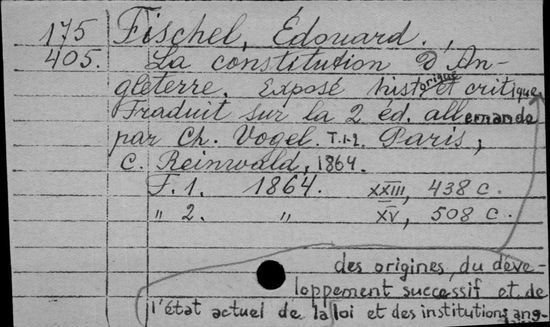 175 Fischel, Édouard.
405. La constitution d'An-
gleterre. Exposé historique et critique
Traduit sur la 2 éd. allemande
par Ch. Vogel. T.1-2. Paris,
C. Reinwald, 1864.
T. 1. 1864. XXIII, 438 c.
" 2. " XV, 508 c.
des origines, du déve-
loppement successif et de
l'état actuel de la loi et des institutions ang-